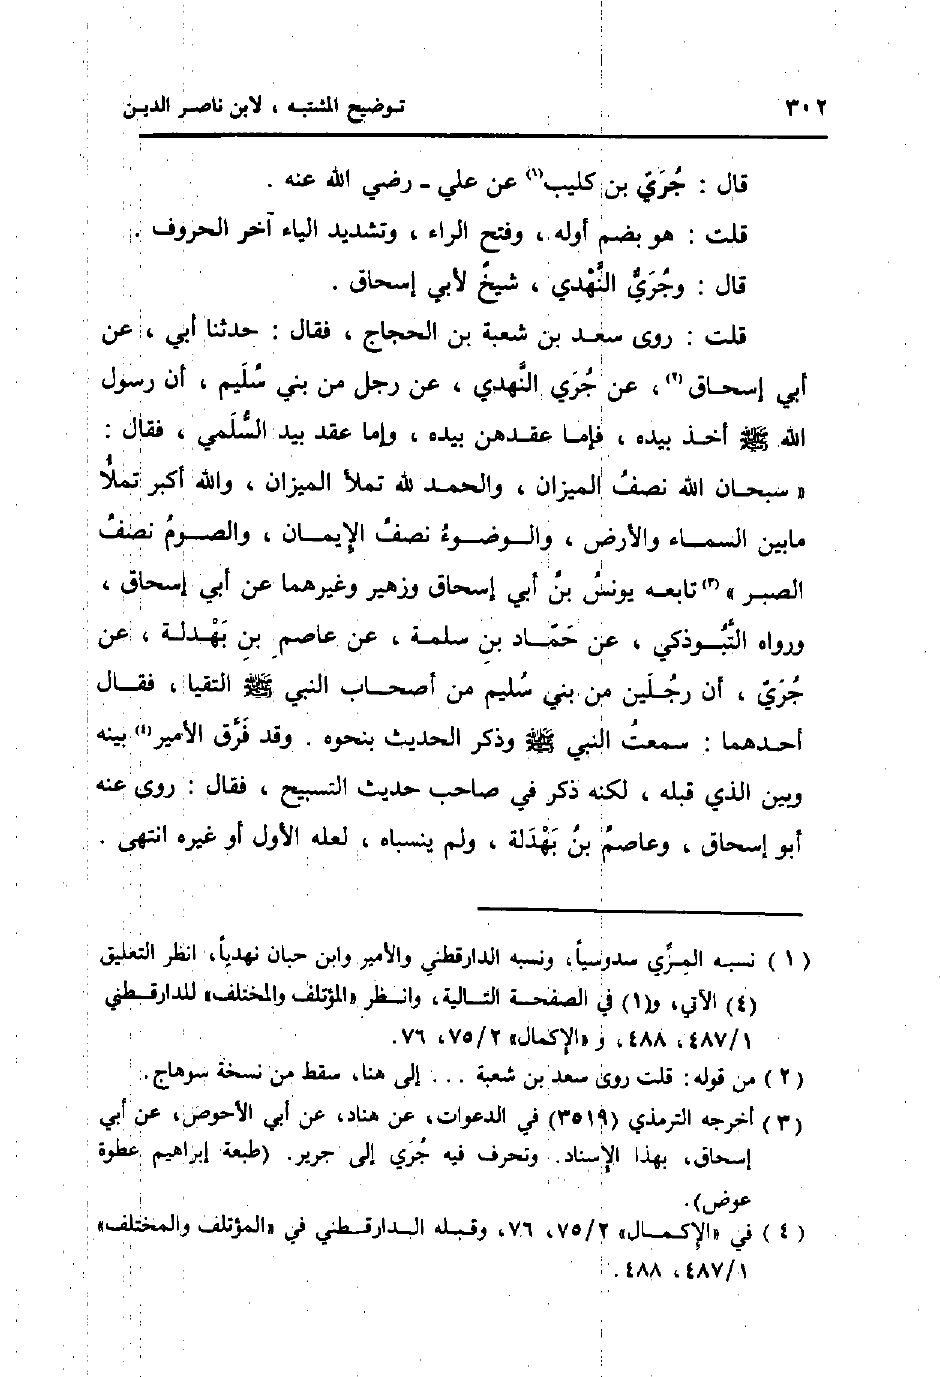 ٣٠٢ توضيح المشتبه ، لابن ناصر الدين
قال : جُرَيّ بن كليب(١) عن علي ـ رضي الله عنه .
قلت : هو بضم أوله ، وفتح الراء ، وتشديد الياء آخر الحروف .
قال : وجُرَيٌّ النَّهْدي ، شيخٌ لأبي إسحاق .
قلت : روى سعد بن شعبة بن الحجاج ، فقال : حدثنا أبي ، عن
أبي إسحاق(٢) ، عن جُرَي النَّهدي ، عن رجل من بني سُلَيم ، أن رسول
الله ﷺ أخذ بيده ، فإما عقدهن بيده ، وإما عقد بيد السُّلَمي ، فقال :
« سبحان الله نصفُ الميزان ، والحمد لله تملأ الميزان ، والله أكبر تملأُ
مابين السماء والأرض ، والوضوءُ نصفُ الإيمان ، والصومُ نصفُ
الصبر »(٣) تابعه يونسُ بنُ أبي إسحاق وزهير وغيرهما عن أبي إسحاق ،
ورواه التَّبُوذكي ، عن حَمَّاد بن سلمة ، عن عاصم بن بَهْدلة ، عن
جُرَيّ ، أن رجُلَين من بني سُليم من أصحاب النبي ﷺ التقيا ، فقال
أحدهما : سمعتُ النبي ﷺ وذكر الحديث بنحوه . وقد فَرَّق الأمير(٤) بينه
وبين الذي قبله ، لكنه ذكر في صاحب حديث التسبيح ، فقال : روى عنه
أبو إسحاق ، وعاصمُ بنُ بَهْدَلة ، ولم ينسباه ، لعله الأول أو غيره انتهى .
(١) نسبه المِزِّي سدوسياً، ونسبه الدارقطني والأمير وابن حبان نهدياً، انظر التعليق
(٤) الآتي، و(١) في الصفحة التالية، وانظر «المؤتلف والمختلف» للدارقطني
٤٨٧/١، ٤٨٨، و «الإكمال» ٧٥/٢، ٧٦.
(٢) من قوله: قلت روى سعد بن شعبة ... إلى هنا، سقط من نسخة سوهاج.
(٣) أخرجه الترمذي (٣٥١٩) في الدعوات، عن هناد، عن أبي الأحوص، عن أبي
إسحاق، بهذا الإسناد. وتحرف فيه جُرَي إلى جرير. (طبعة إبراهيم عطوة
عوض).
(٤) في «الإكمال» ٧٥/٢، ٧٦، وقبله الدارقطني في «المؤتلف والمختلف»
٤٨٧/١، ٤٨٨.